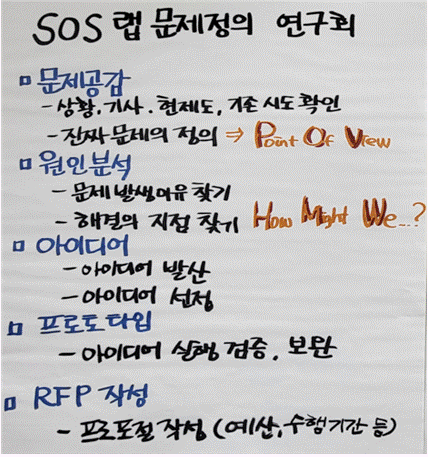 SOS 랩 문제정의 연구회
□ 문제공감
- 상황, 기사, 현제도, 기존 시도 확인
- 진짜 문제의 정의 ⇒ Point Of View
□ 원인분석
- 문제 발생이유 찾기
- 해결의 지점 찾기 How Might We...?
□ 아이디어
- 아이디어 발산
- 아이디어 선정
□ 프로토타입
- 아이디어 실행 검증, 보완
□ RFP 작성
- 프로포절 작성 (예산, 수행기간 등)